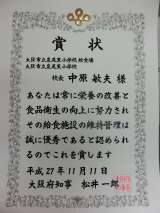 賞状
大阪市立夏見里小学校 給食場
大阪市立夏見里小学校
校長 中原 敏夫 様
あなたは常に栄養の改善と
食品衛生の向上に努力され
その給食施設の維持管理は
誠に優秀であると認められ
るのでこれを賞します
平成27年11月11日
大阪府知事 松井一郎